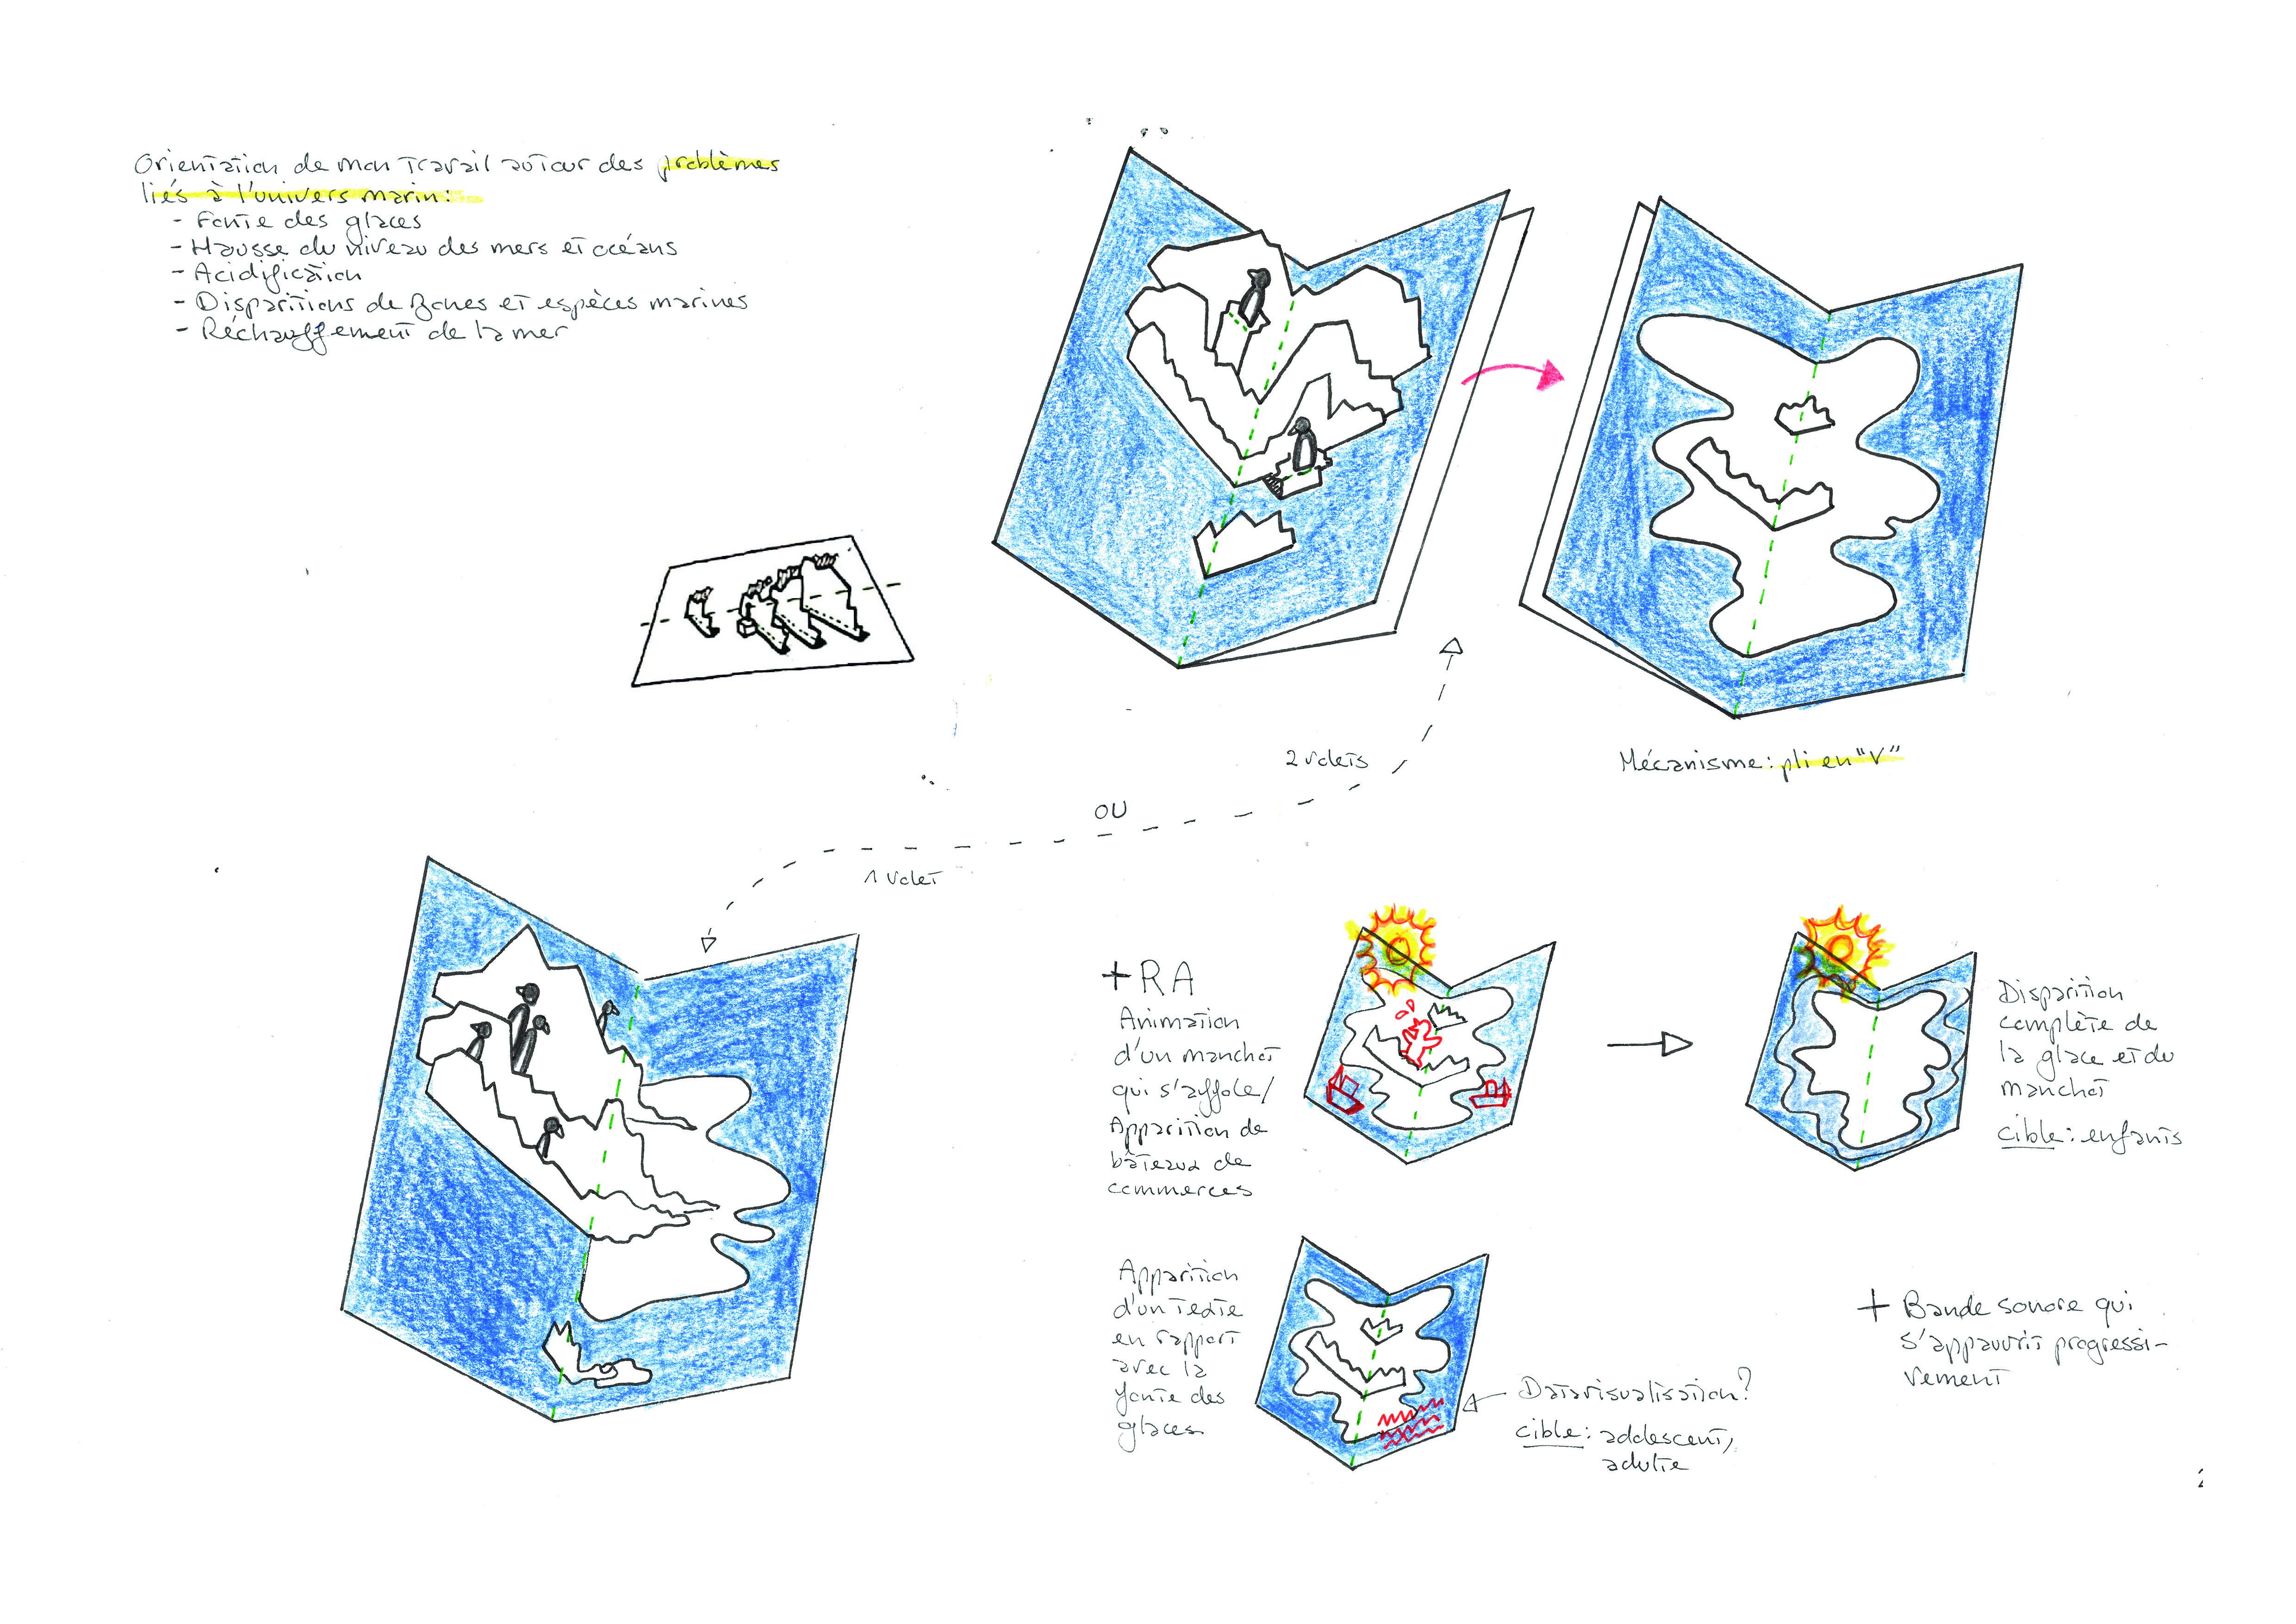 Orientation de mon travail autour des problèmes
liés à l'univers marin:
- Fonte des glaces
- Hausse du niveau des mers et océans
- Acidification
- Disparitions de zones et espèces marines
- Réchauffement de la mer
2 volets
Mécanisme: pli en "V"
OU
1 volet
+ RA
Animation
d'un manchot
qui s'affole/
Apparition de
bâteaux de
commerces
Disparition
complète de
la glace et du
manchot
cible: enfants
Apparition
d'un texte
en rapport
avec la
fonte des
glaces
Datavisualisation?
cible: adolescent,
adulte
+ Bande sonore qui
s'appauvrit progressi-
vement